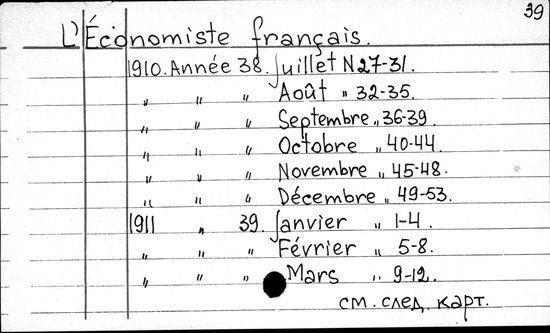 39
L'Économiste français.
1910. Année 38. Juillet N 27-31.
„ „ „ Août „ 32-35.
„ „ „ Septembre „ 36-39.
„ „ „ Octobre „ 40-44.
„ „ „ Novembre „ 45-48.
„ „ „ Décembre „ 49-53.
1911 „ 39. Janvier „ 1-4.
„ „ „ Février „ 5-8.
„ „ „ Mars „ 9-12.
см. след. карт.